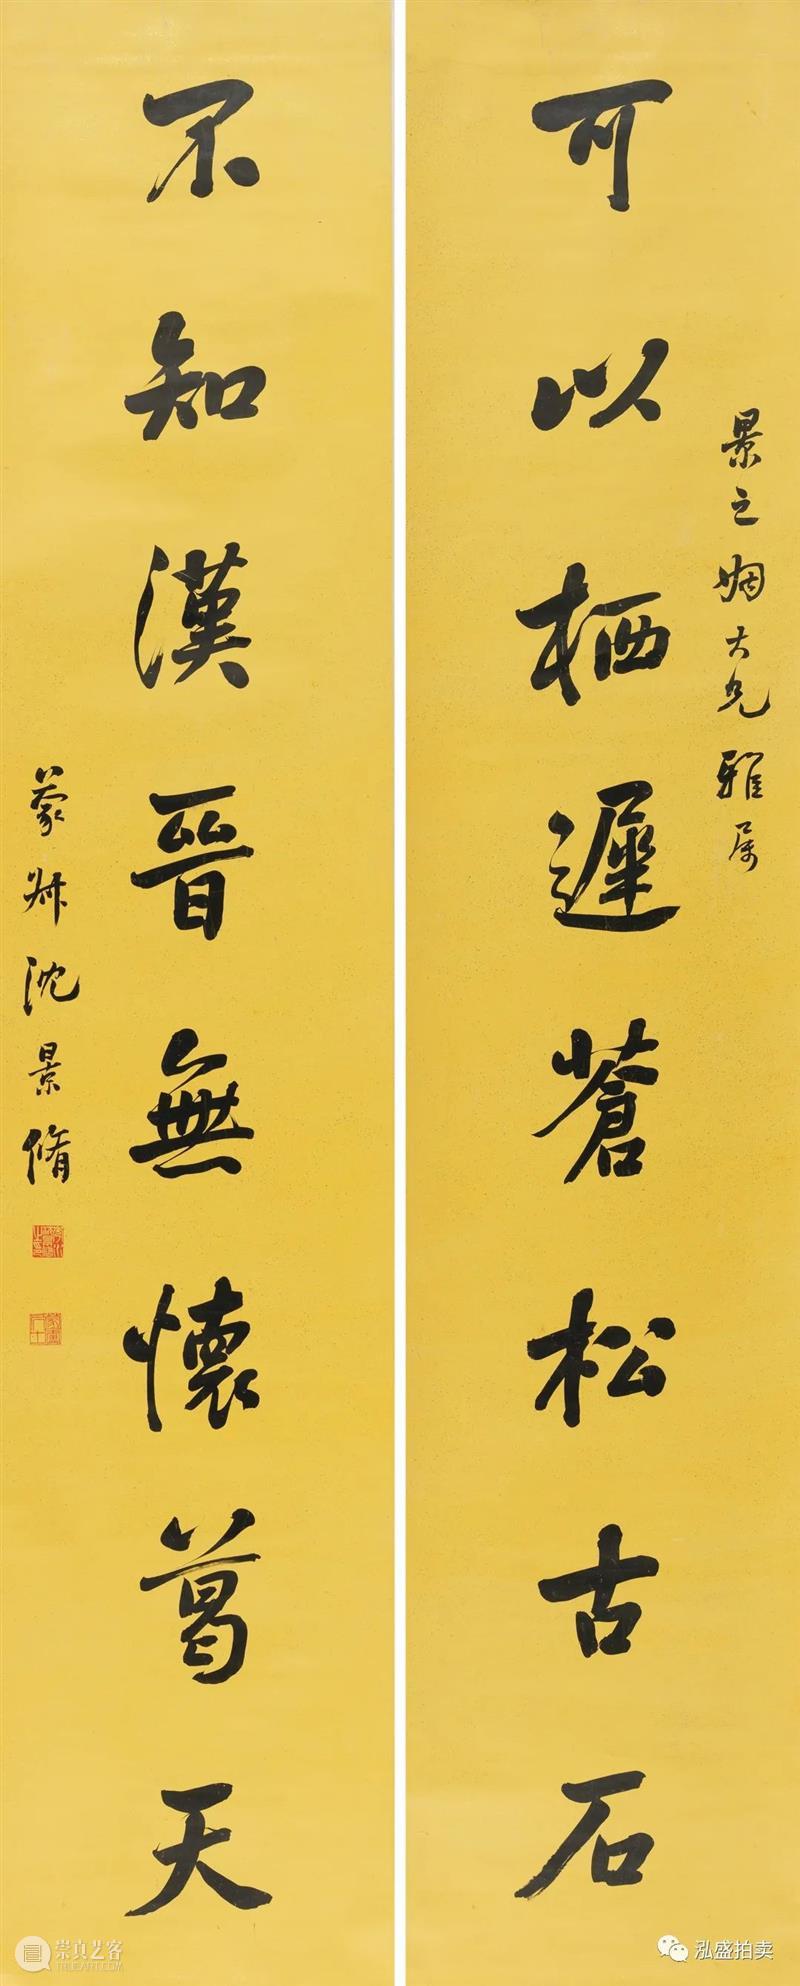 景之姻大兄雅属
可以栖遲蒼松古石
不知漢晉無懷葛天
蒙叔沈景脩
崇真艺客
WWW.TRUEART.COM
泓盛拍卖